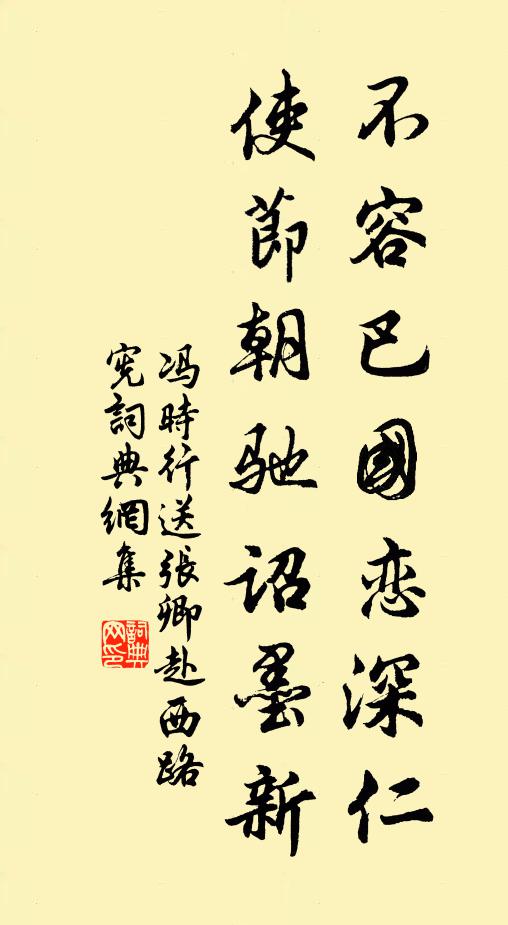 不容巴國恋深仁
使節朝驰詔墨新
冯時行送張卿赴西路
宪詞典網集
詞典网印